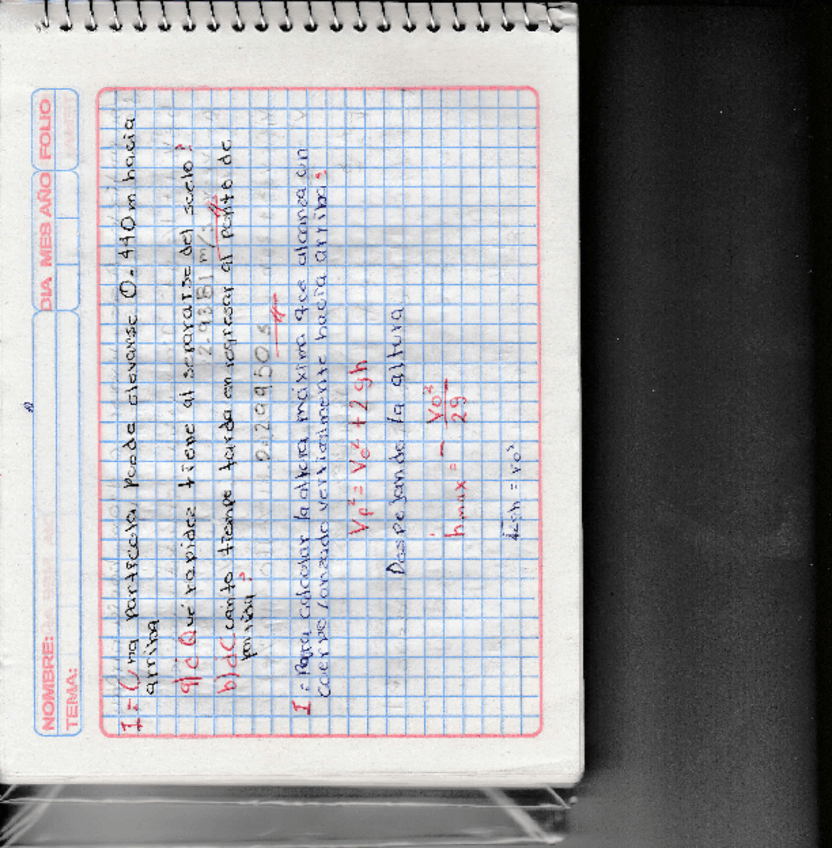 NOMBRE:
DIA MES AÑO FOLIO
TEMA:
I = Una particula, puede elevarse 0.440 m hacia
arriba
a) ¿Qué rapidez tiene al separarse del suelo?
2.9381 m/s
b) ¿Cuánto tiempo tarda en regresar al punto de
partida?
0.29950 s
I = Para calcular la altura máxima que alcanza un
cuerpo lanzado verticalmente hacia arriba:
VF² = Vo² + 2gh
Despejando la altura
hmax = - Vo² / 2g
= Vo²